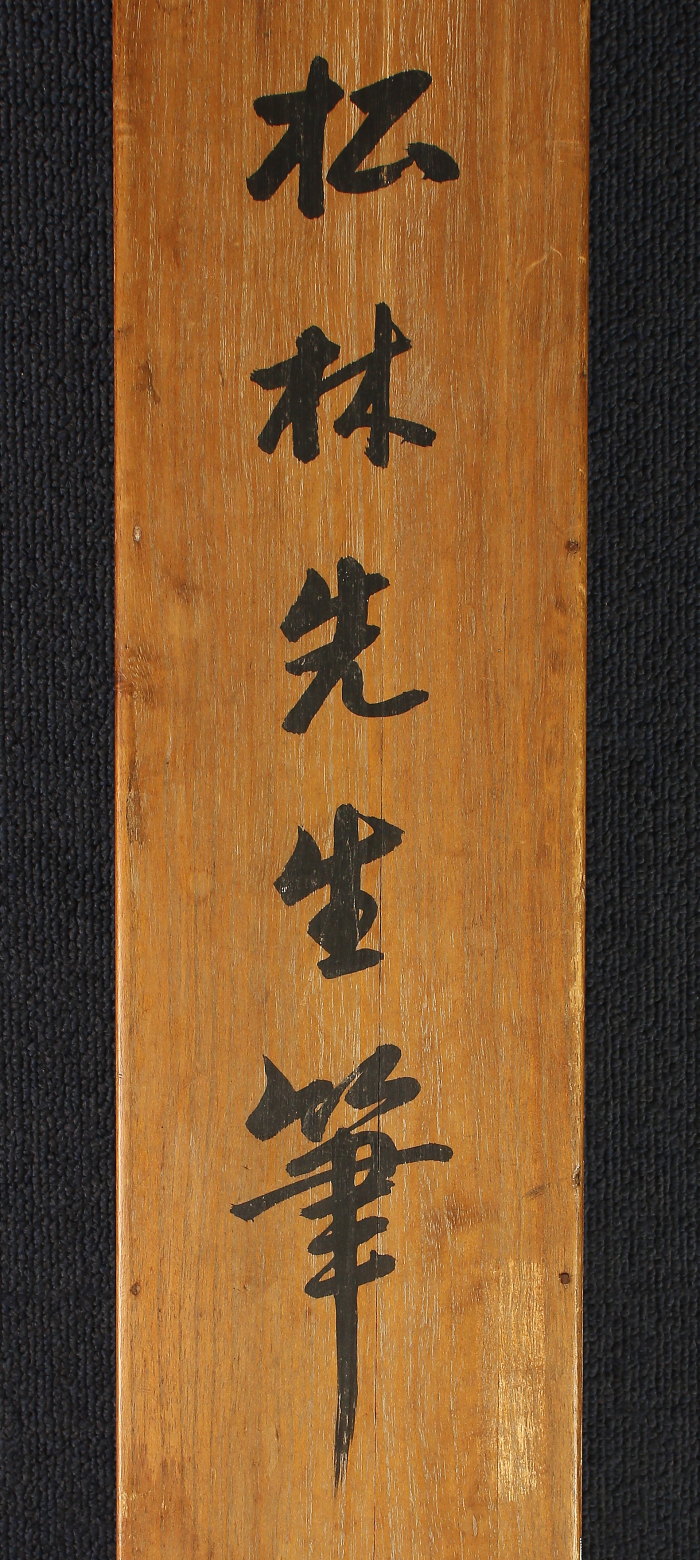 松林先生筆